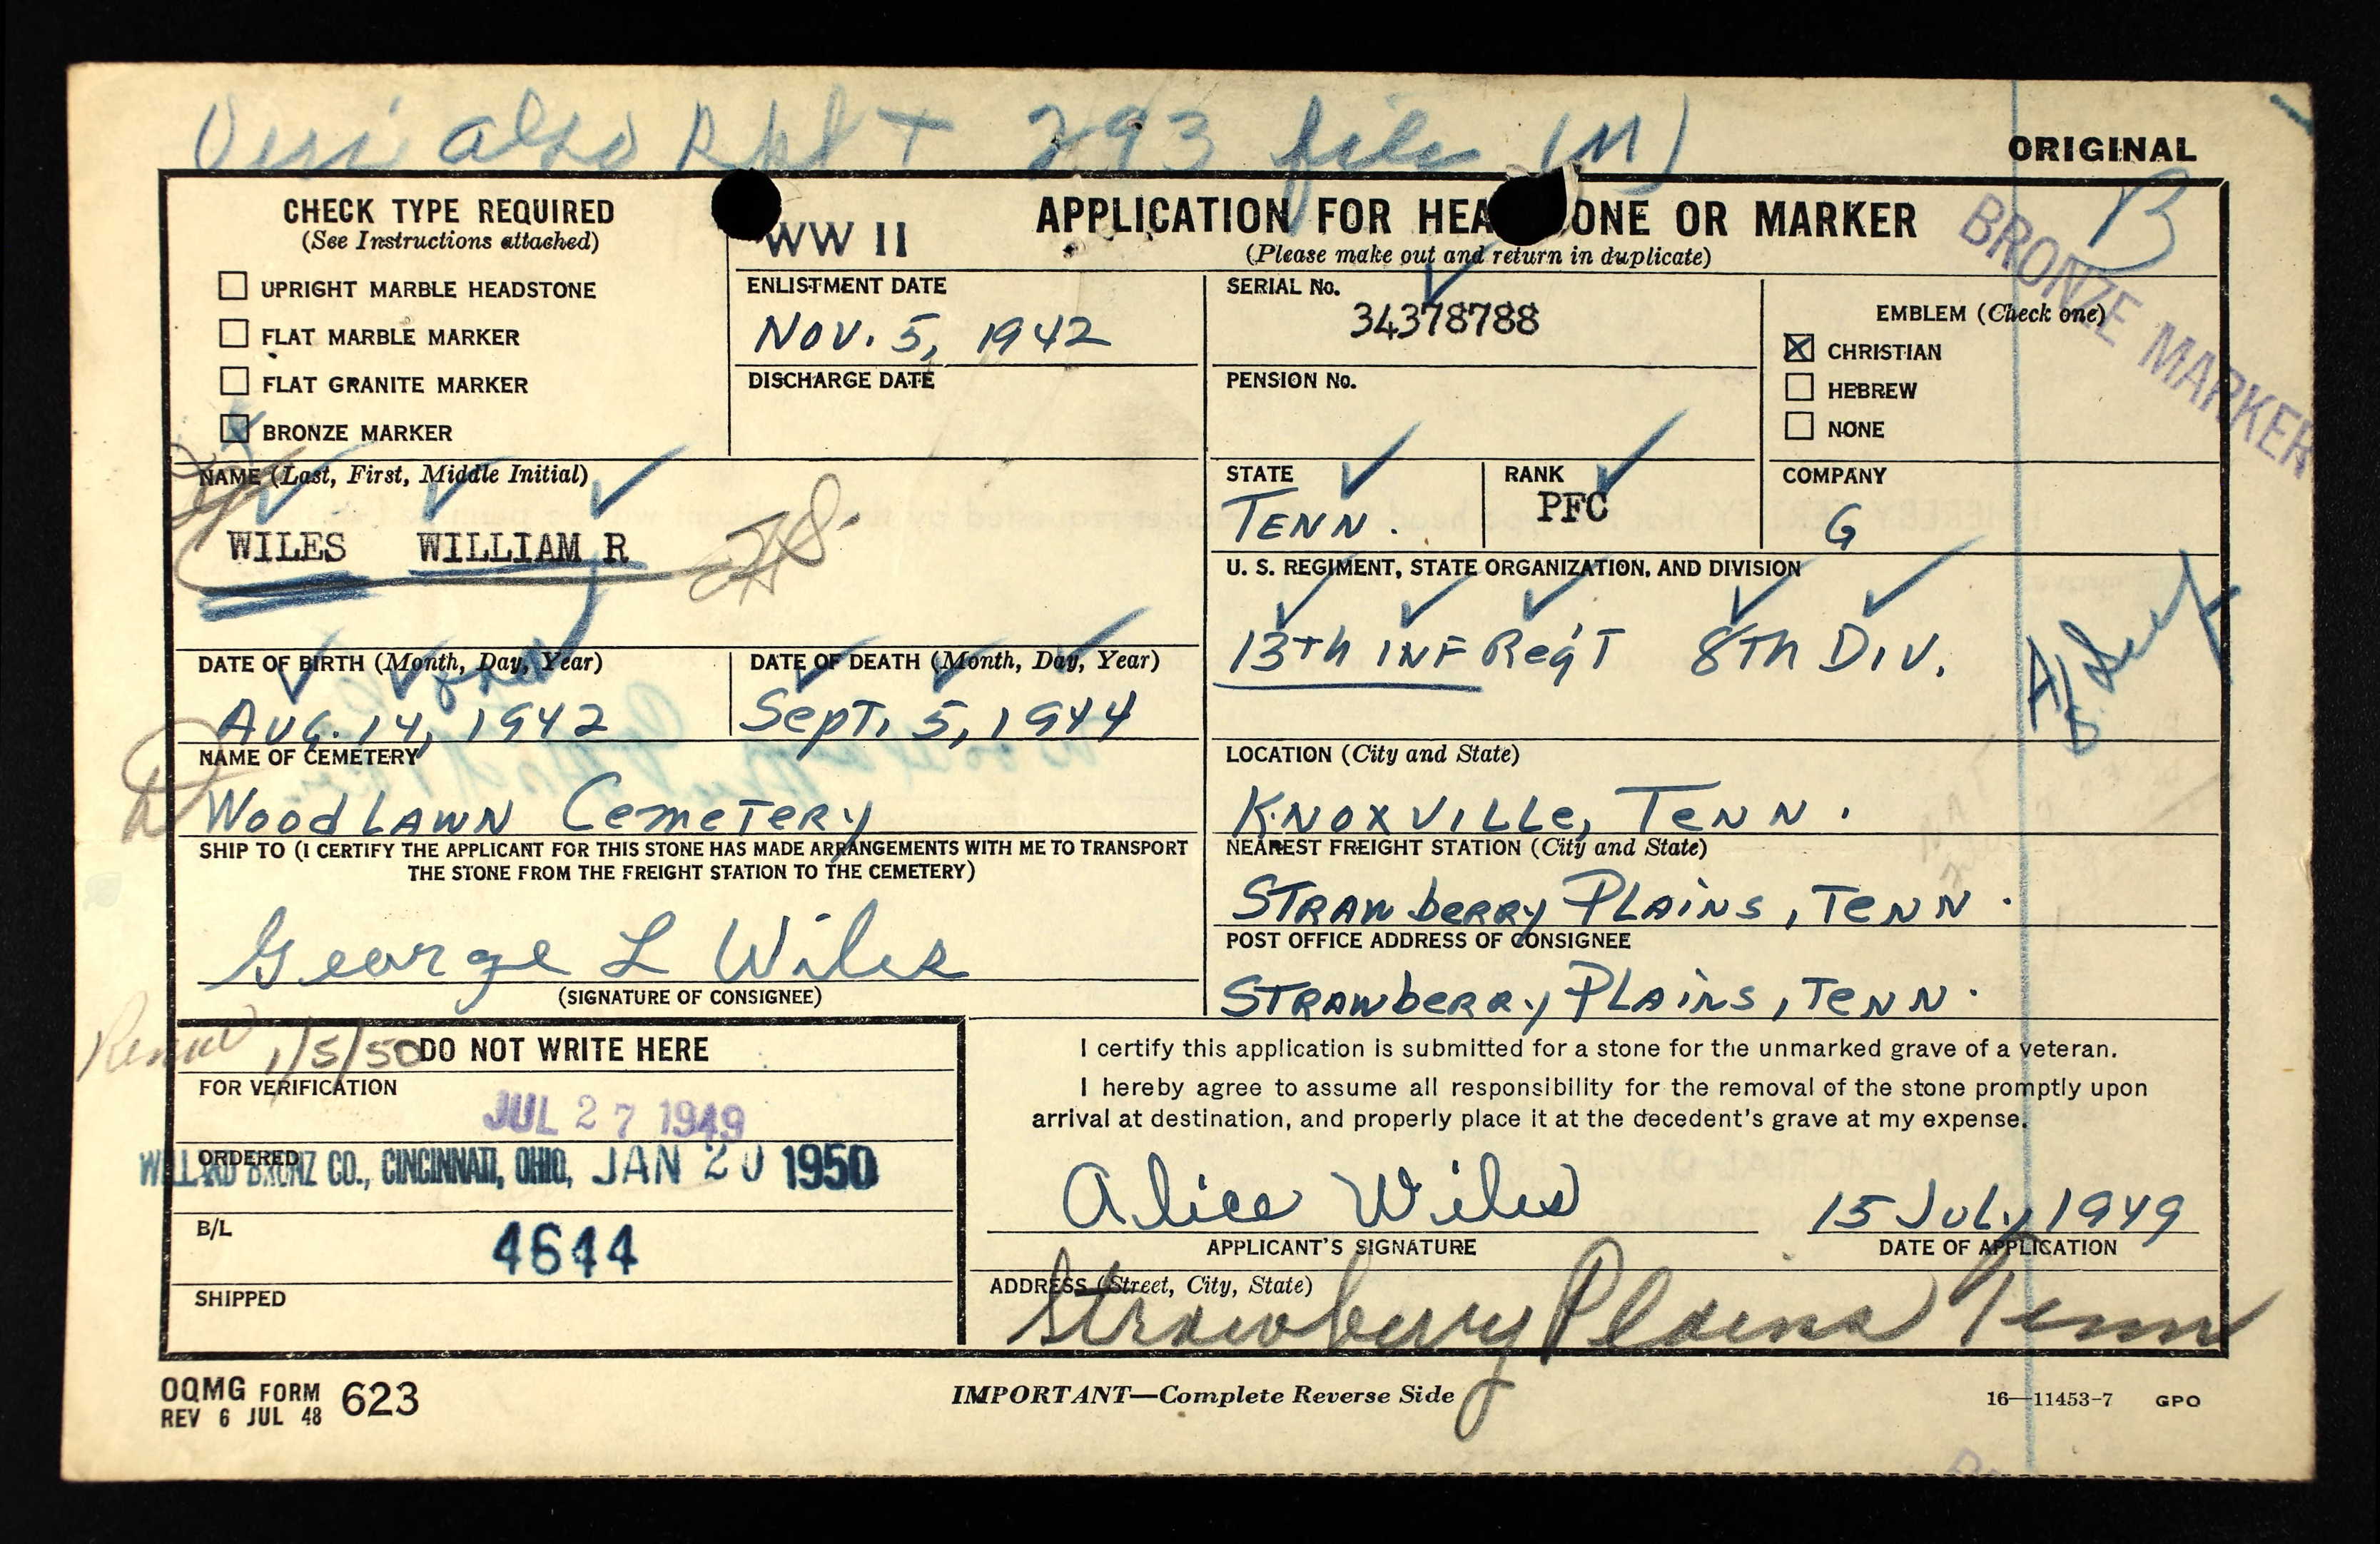 also 293 file (M)
ORIGINAL
CHECK TYPE REQUIRED
(See Instructions attached)
UPRIGHT MARBLE HEADSTONE
FLAT MARBLE MARKER
FLAT GRANITE MARKER
BRONZE MARKER
WW II
APPLICATION FOR HEA ONE OR MARKER
(Please make out and return in duplicate)
B
BRONZE MARKER
ENLISTMENT DATE
NOV. 5, 1942
DISCHARGE DATE
SERIAL No.
34378788
PENSION No.
EMBLEM (Check one)
CHRISTIAN
HEBREW
NONE
NAME (Last, First, Middle Initial)
WILES WILLIAM R
STATE
TENN.
RANK
PFC
COMPANY
G
U. S. REGIMENT, STATE ORGANIZATION, AND DIVISION
13th INF Reg'T 8Th DIV.
DATE OF BIRTH (Month, Day, Year)
AUG. 14, 1942
DATE OF DEATH (Month, Day, Year)
SepT. 5, 1944
NAME OF CEMETERY
WoodLAWN CemeTeRy
LOCATION (City and State)
KNOXVILLe, TeNN.
SHIP TO (I CERTIFY THE APPLICANT FOR THIS STONE HAS MADE ARRANGEMENTS WITH ME TO TRANSPORT
THE STONE FROM THE FREIGHT STATION TO THE CEMETERY)
George L Wiles
(SIGNATURE OF CONSIGNEE)
NEAREST FREIGHT STATION (City and State)
STRAWbeRRy PLAiNS, TeNN.
POST OFFICE ADDRESS OF CONSIGNEE
STRAWbeRRy PLAiNS, TeNN.
1/5/50
DO NOT WRITE HERE
FOR VERIFICATION
JUL 27 1949
ORDERED
WILLARD BRONZ CO., CINCINNATI, OHIO, JAN 20 1950
B/L
4644
SHIPPED
I certify this application is submitted for a stone for the unmarked grave of a veteran.
I hereby agree to assume all responsibility for the removal of the stone promptly upon
arrival at destination, and properly place it at the decedent's grave at my expense.
Alice Wiles
15 JuLy 1949
APPLICANT'S SIGNATURE
DATE OF APPLICATION
ADDRESS (Street, City, State)
Strawberry Plains Tenn
OQMG FORM 623
REV 6 JUL 48
IMPORTANT—Complete Reverse Side
16—11453-7 GPO